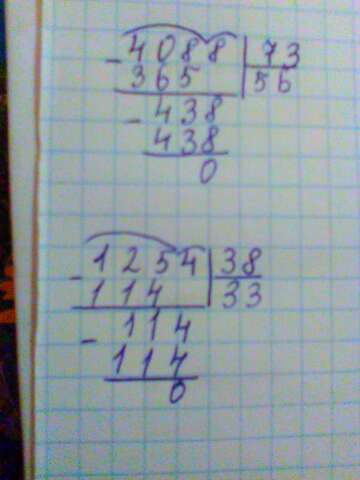 - 4088 | 73
365 | 56
- 438
438
0
- 1254 | 38
114 | 33
- 114
114
0